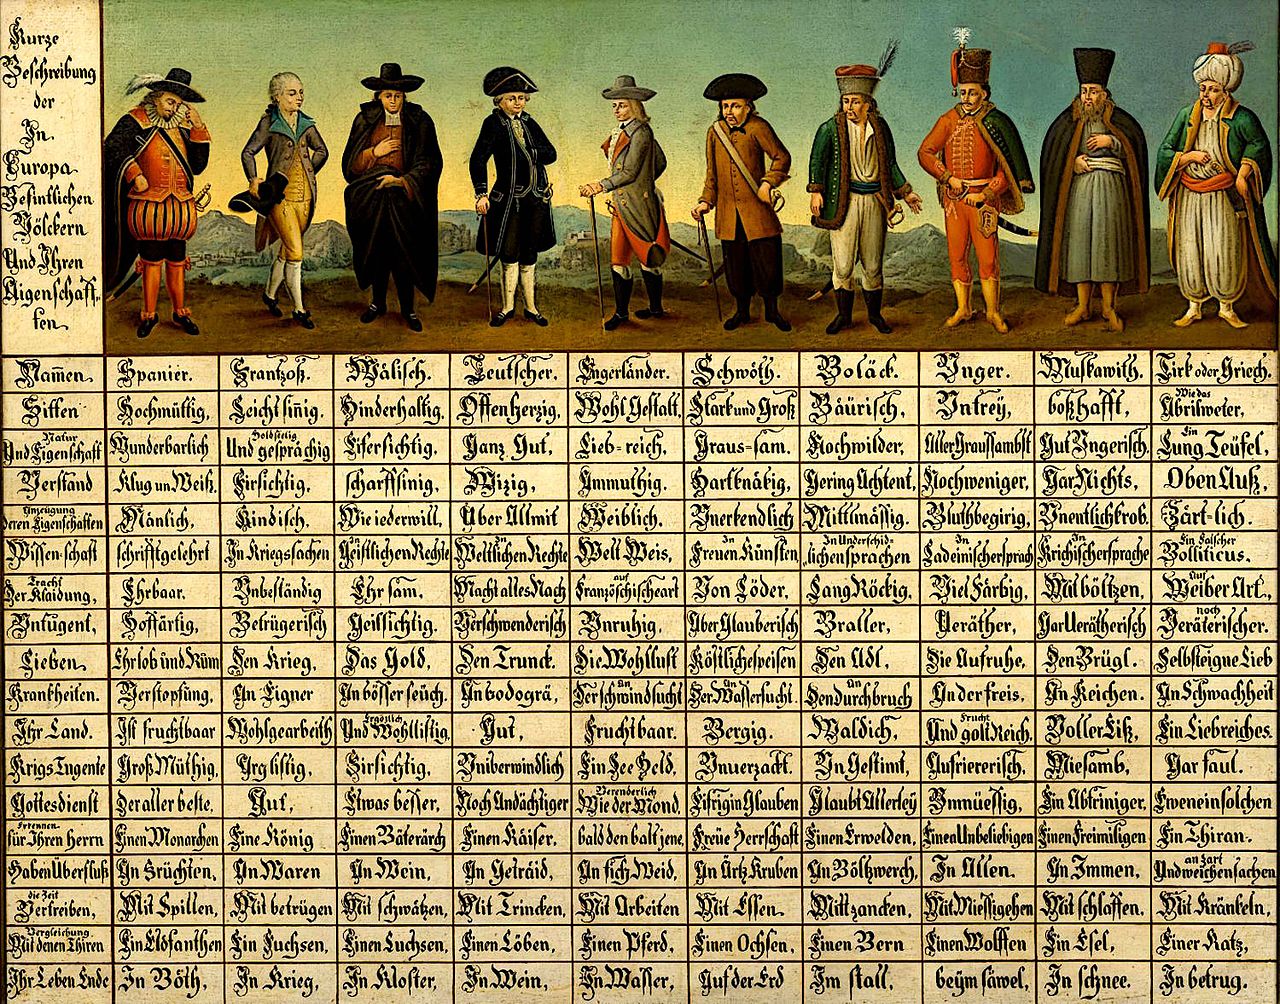 Kurze
Beschreibung
der
In
Europa
Befintlichen
Völckern
Und Ihren
Aigenschaff
ten
Nam̄en. Spanier. Frantzoß. Wälisch. Teutscher. Engerländer. Schwöth. Boläck. Unger. Muskawith. Tirk oder Griech.
Sitten Hochmüttig, Leicht sin̄ig. Hinderhaltig, Offen Herzig, Wohl Gestalt, Stark und Groß Bäurisch, Untrey, boßhafft, Wie das Abrilweter,
Und Natur Eigenschaft Wunderbarlich Und Holdseelig gesprächig Eifersichtig, Ganz Gut, Lieb=reich, Graus=sam. Nochwilder, Aller Graussambst Gut Ungerisch. Ein Lung Teüfel,
Verstand Klug un Weiß. Firsichtig. scharffsinig, Wizig, Ammuthig. Hartknäkig, Gering Achtent, Nochweniger, Gar Nichts, Oben Auß,
Anzeügung deren Eigenschaften Mänlich, Kindisch. Wie iederwill, Über Allmit Weiblich. Unerkendlich Mittlmässig. Bluthbegirig, Unentlichkrob. Zärt-lich.
Wissenschaft schrifftgelehrt In Kriegssachen In Geistlichen Rechte In Weltlichen Rechte Welt Weis, In Freuen Künsten In Underschid- lichensprachen In Ladeinischersprach In Krichischersprache Ein Falscher Bolliticus.
Tracht Der Klaidung, Ehrbaar. Unbeständig Ehrsam. Macht alles Nach auf Französchischeart Von Löder, Lang Röckig, Viel Färbig, Mit böltzen, Auf Weiber Art,
Untugent, Hoffärtig, Betrügerisch Geissichtig. Verschwenderisch Unruhig, Über Glauberisch Braller, Veräther, Gar Verätherisch noch Veräterischer.
Lieben. Ehr lob und Rüm Den Krieg, Das Gold, Den Trunck. Die Wohllust Köstlichespeisen Den Adl, Die Aufruhe, Den Brügl. Selbsteigne Lieb
Krankheiten. Verstopfung, An Eigner An bösser seüch, An bodogrä, An Der schwindsucht An Der Wassersucht. An Den durchbruch An der freis, An Keichen. An Schwachheit
Ihr Land. Ist fruchtbaar Wohlgearbeith Und Ergözlich Wohllistig. Gut, Fruchtbaar. Bergig. Waldich, Und Frucht golt Reich. Voller Eiß, Ein Liebreiches.
Krigs Tugente Groß Müthig, Arglistig, Firsichtig, Uniberwindlich Ein See Held, Unuerzackt. Un Gestimt, Aufriererisch, Miesamb, Gar faul.
Gottesdienst Der aller beste, Gut, Etwas besser, Noch Andächtiger Verenderlich Wie der Mond. Eifrig in Glauben Glaubt Allerley Unmüessig, Ein Abtriniger, Eweneinsolchen
Erkennen für Ihren Herrn Einen Monarchen Eine König Einen Bäterärch Einen Käiser, bald den balt jene, Freüe Herrschaft Einen Erwelden, Einen Unbeliebigen Einen Freiwiligen Ein Thiran.
Haben Überfluß An Früchten, An Waren An Wein, An Geträid, An fich Weid, An Ärtz Kruben An Böltzwerch, In Allen. An Immen, An zart Und weichen sachen
die Zeit Vertreiben, Mit Spillen, Mit betrügen Mit schwätzen, Mit Trincken, Mit Arbeiten Mit Essen. Mit zancken, Mit Miessigehen Mit schlaffen. Mit Kränkeln,
Vergleichung Mit denen Thiren Ein Elofanthen Ein Fuchsen, Einen Luchsen, Einen Löben, Einen Pferd, Einen Ochsen, Einen Bern Einen Wolffen Ein Esel, Einer Katz,
Ihr Leben Ende In Böth, In Krieg, In Kloster, In Wein, In Wasser, Auf der Erd Im stall, beym säwel, In schnee. In betrug.